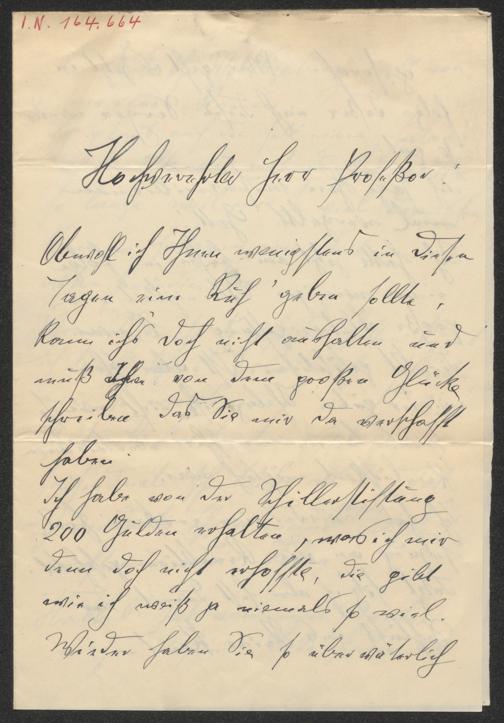 I.N. 164.664
Hochverehrter Herr Professor!
Obwohl ich Ihnen wenigstens in diesen
Tagen eine Ruh' geben sollte,
kann ich's doch nicht aushalten und
muß von dem großen Glücke
schreiben das Sie mir da verschafft
haben.
Ich habe von der Schillerstiftung
200 Gulden erhalten, was ich mir
denn doch nicht erhoffte, die gibt
wie ich weiß ja niemals so viel.
Wieder haben Sie so überväterlich